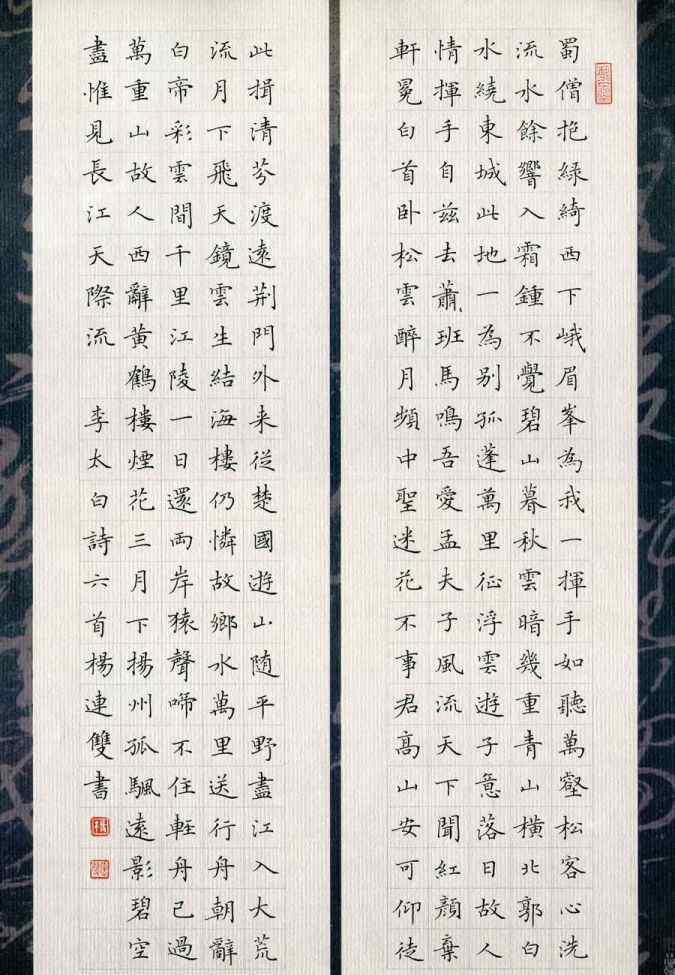 蜀僧抱綠綺西下峨眉峯為我一揮手如聽萬壑松客心洗
流水餘響入霜鍾不覺碧山暮秋雲暗幾重青山橫北郭白
水繞東城此地一為別孤蓬萬里征浮雲遊子意落日故人
情揮手自茲去蕭、班馬鳴吾愛孟夫子風流天下聞紅顏棄
軒冕白首臥松雲醉月頻中聖迷花不事君高山安可仰徒
此揖清芬渡遠荊門外来從楚國遊山隨平野盡江入大荒
流月下飛天鏡雲生結海樓仍憐故鄉水萬里送行舟朝辭
白帝彩雲間千里江陵一日還兩岸猿聲啼不住輕舟已過
萬重山故人西辭黃鶴樓煙花三月下揚州孤颿遠影碧空
盡惟見長江天際流 李太白詩六首楊連雙書